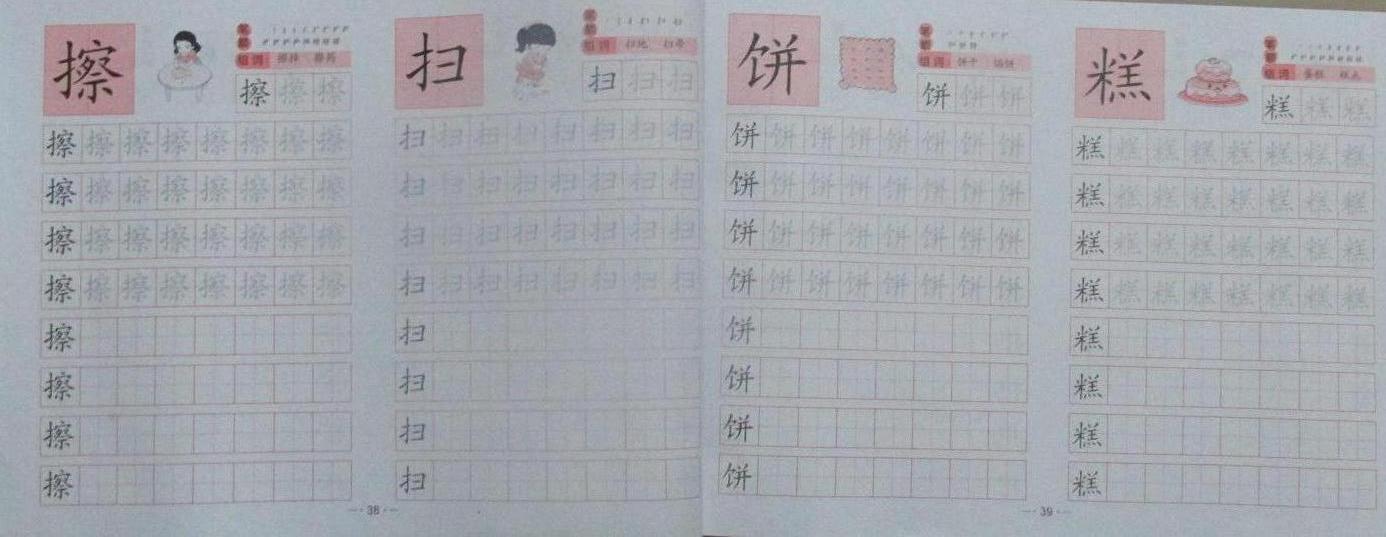 擦
笔顺
组词
擦 擦 擦
擦 擦 擦 擦 擦 擦 擦 擦
擦 擦 擦 擦 擦 擦 擦 擦
擦 擦 擦 擦 擦 擦 擦 擦
擦 擦 擦 擦 擦 擦 擦 擦
擦
擦
擦
擦
扫
笔顺
组词 扫地 扫帚
扫 扫 扫
扫 扫 扫 扫 扫 扫 扫 扫
扫 扫 扫 扫 扫 扫 扫 扫
扫 扫 扫 扫 扫 扫 扫 扫
扫 扫 扫 扫 扫 扫 扫 扫
扫
扫
扫
扫
38
饼
笔顺
组词 饼干
饼 饼 饼
饼 饼 饼 饼 饼 饼 饼 饼
饼 饼 饼 饼 饼 饼 饼 饼
饼 饼 饼 饼 饼 饼 饼 饼
饼 饼 饼 饼 饼 饼 饼 饼
饼
饼
饼
饼
糕
笔顺
组词 蛋糕 糕点
糕 糕 糕
糕 糕 糕 糕 糕 糕 糕 糕
糕 糕 糕 糕 糕 糕 糕 糕
糕 糕 糕 糕 糕 糕 糕 糕
糕 糕 糕 糕 糕 糕 糕 糕
糕
糕
糕
糕
39